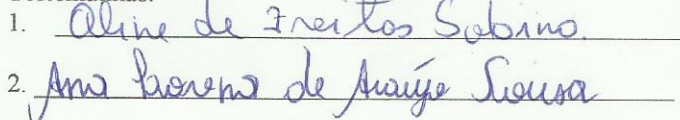 1. Aline de Freitas Sabino.
2. Ana Lorena de Araújo Sousa